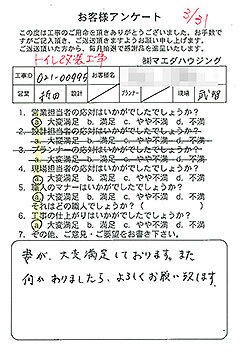 お客様アンケート
3/31
この度は工事のご用命を頂きありがとうございました。お手数で
すがご記入頂き、ご返送頂きますようお願い申し上げます。
ご返送頂いた方から、毎月抽選で感謝品を進呈いたします。
トイレ改装工事
㈱マエダハウジング
工事ID 021-00995 お客様名
営業 折田 設計 プランナー 現場 武智
1. 営業担当者の応対はいかがでしたでしょうか?
ⓐ大変満足 b. 満足 c. やや不満 d. 不満
2. 設計担当者の応対はいかがでしたでしょうか?
a. 大変満足 b. 満足 c. やや不満 d. 不満
3. プランナーの応対はいかがでしたでしょうか?
a. 大変満足 b. 満足 c. やや不満 d. 不満
4. 現場担当者の応対はいかがでしたでしょうか?
ⓐ大変満足 b. 満足 c. やや不満 d. 不満
5. 職人のマナーはいかがでしたでしょうか?
ⓐ大変満足 b. 満足 c. やや不満 d. 不満
それはどの職人でしょうか?( )
6. 工事の仕上がりはいかがでしたでしょうか?
ⓐ大変満足 b. 満足 c. やや不満 d. 不満
7. その他、ご意見・ご要望をお書き下さい。
妻が、大変満足しております。また
何かありましたら、よろしくお願い致します。